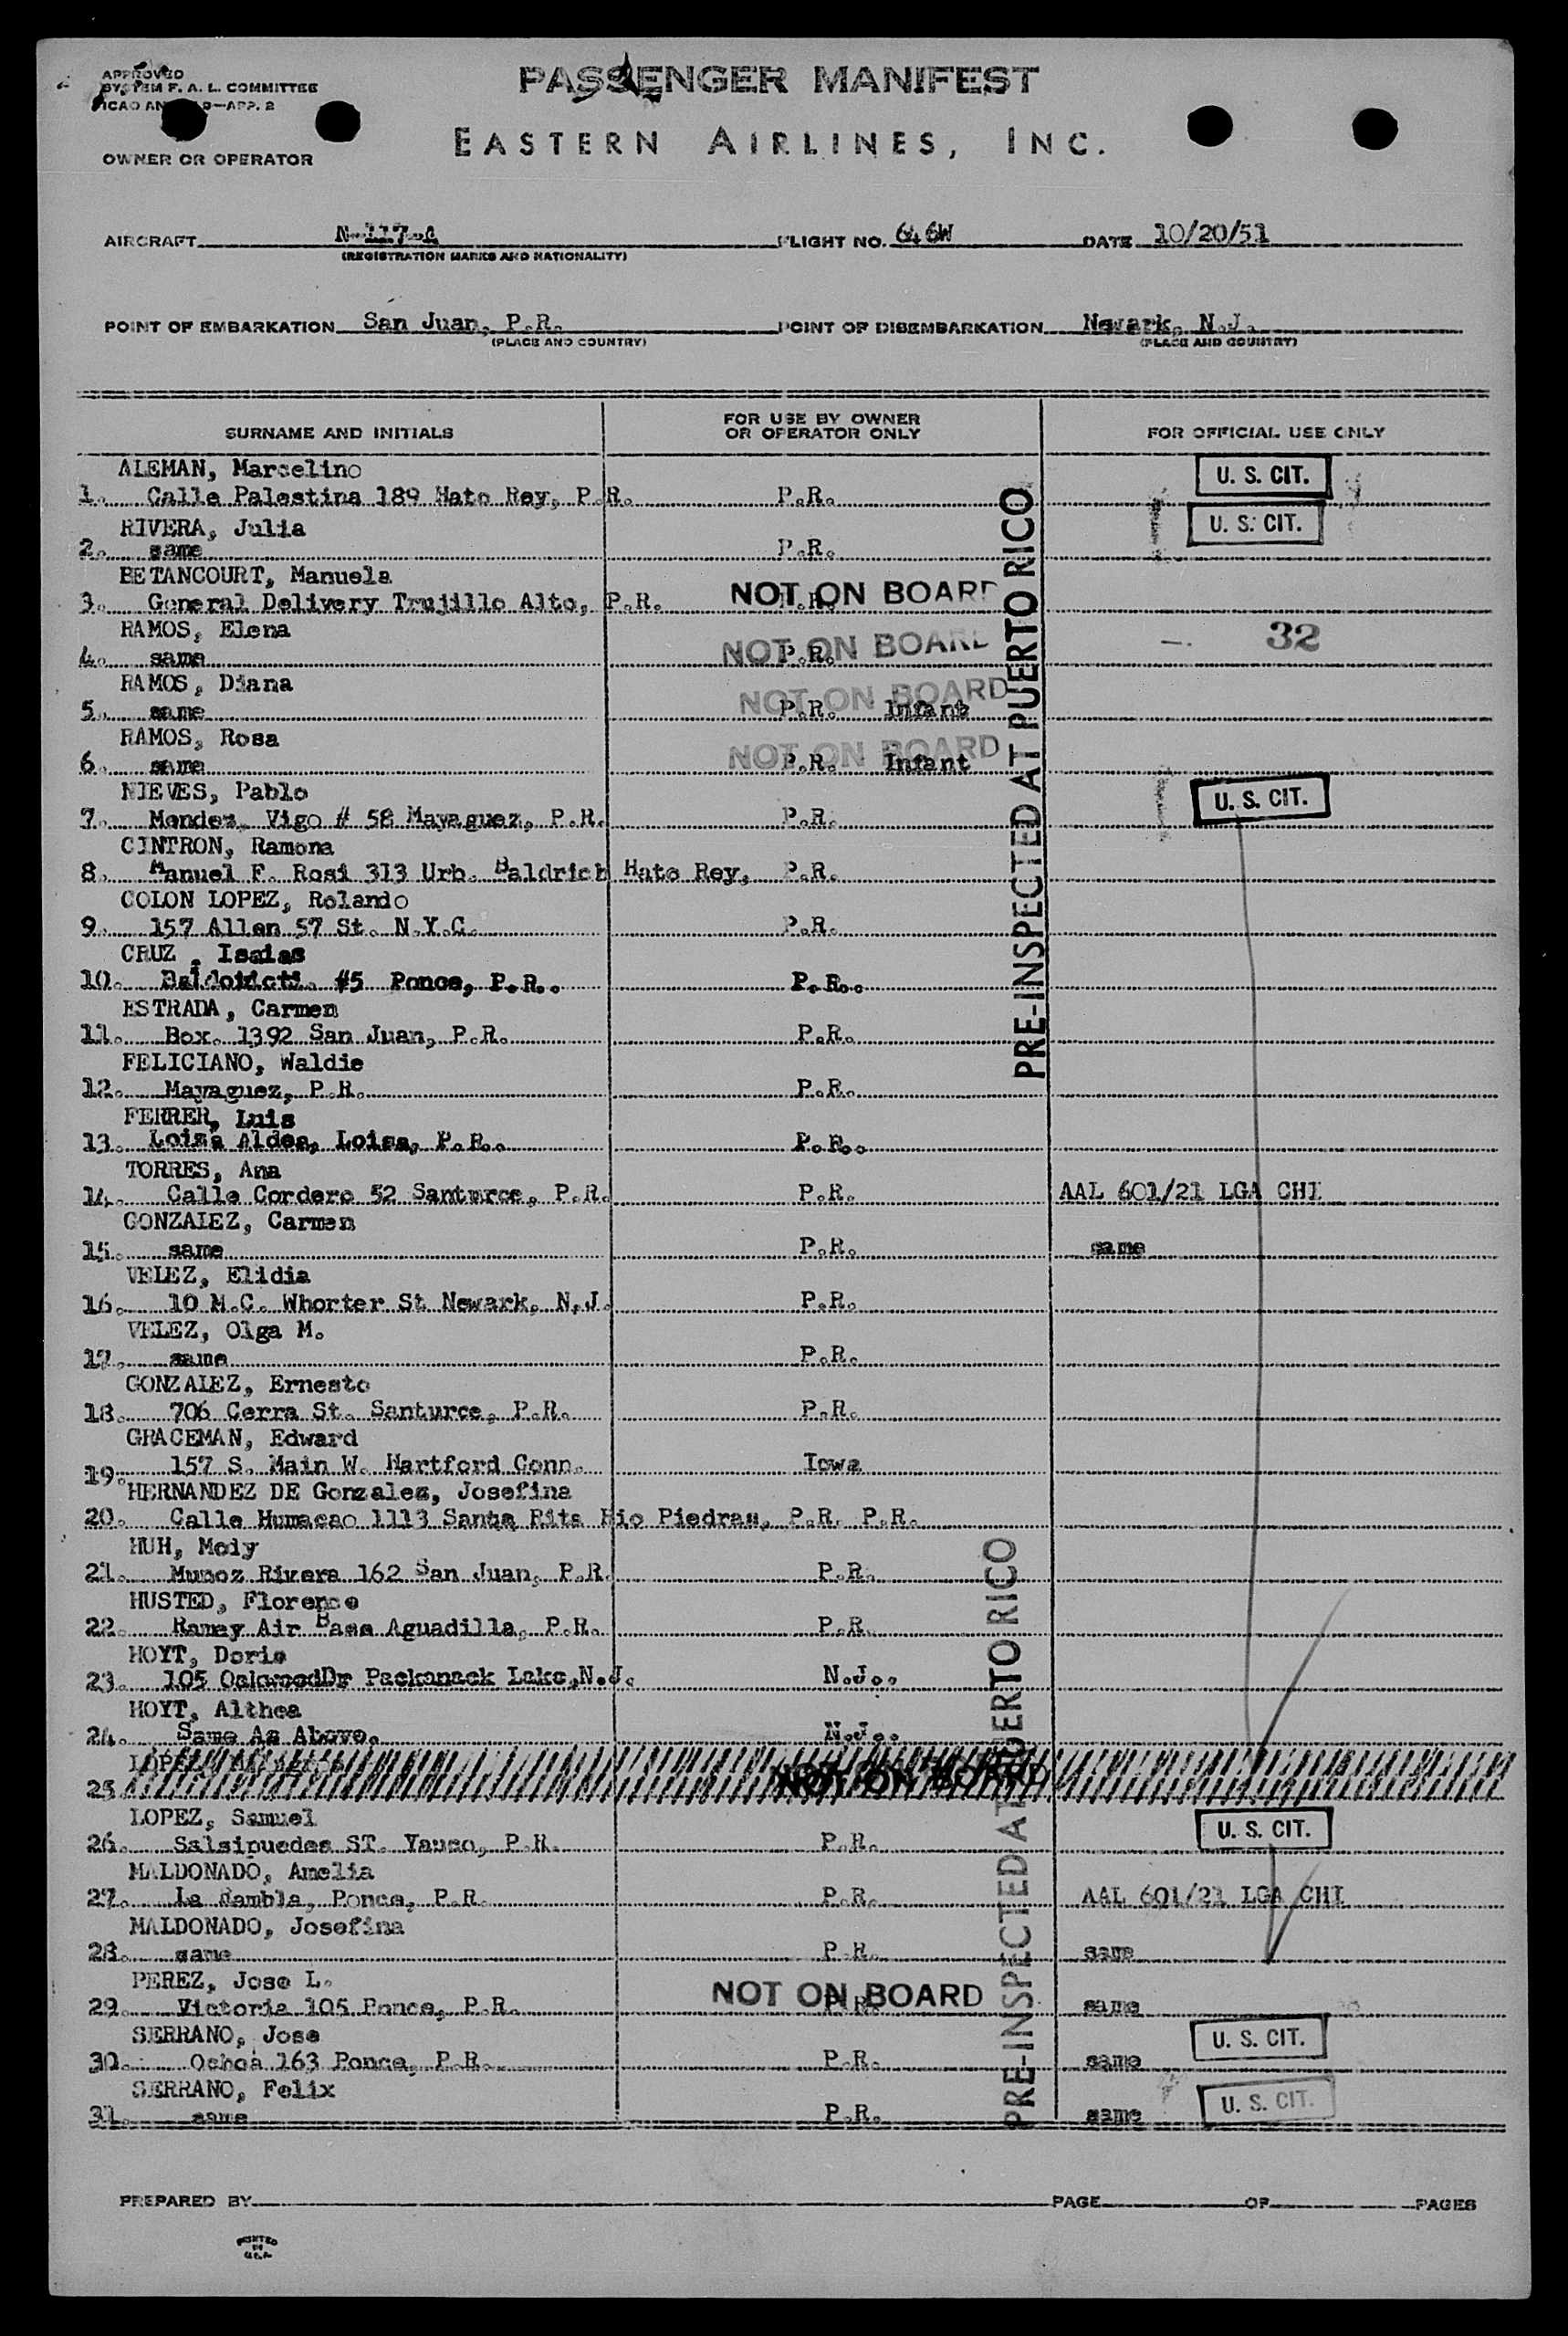 APPROVED
SYSTEM F. A. L. COMMITTEE
ICAO AN 9—APP. 2
PASSENGER MANIFEST
EASTERN AIRLINES, INC.
OWNER OR OPERATOR
AIRCRAFT N-117-A FLIGHT NO. 646W DATE 10/20/51
(REGISTRATION MARKS AND NATIONALITY)
POINT OF EMBARKATION San Juan, P.R. POINT OF DISEMBARKATION Newark, N.J.
(PLACE AND COUNTRY) (PLACE AND COUNTRY)
SURNAME AND INITIALS FOR USE BY OWNER OR OPERATOR ONLY FOR OFFICIAL USE ONLY
ALEMAN, Marcelino U. S. CIT.
1. Calle Palestina 189 Hato Rey, P.R. P.R.
RIVERA, Julia U. S. CIT.
2. same P.R.
BETANCOURT, Manuela
3. General Delivery Trujillo Alto, P.R. P.R. NOT ON BOARD
RAMOS, Elena 32
4. same P.R. NOT ON BOARD
RAMOS, Diana
5. same P.R. Infant NOT ON BOARD
RAMOS, Rosa
6. same P.R. Infant NOT ON BOARD
NIEVES, Pablo U. S. CIT.
7. Mendez Vigo # 58 Mayaguez, P.R. P.R.
CINTRON, Ramona
8. Manuel F. Rosi 313 Urb. Baldrich Hato Rey, P.R.
COLON LOPEZ, Rolando
9. 157 Allen 57 St. N.Y.C. P.R.
CRUZ, Isaias
10. #5 Ponce, P.R.. P.R..
ESTRADA, Carmen
11. Box. 1392 San Juan, P.R. P.R.
FELICIANO, Waldie
12. Mayaguez, P.R. P.R.
FERRER, Luis
13. Loiza Aldea, Loiza, P.R.. P.R..
TORRES, Ana
14. Calle Cordero 52 Santurce, P.R. P.R. AAL 601/21 LGA CHI
GONZALEZ, Carmen
15. same P.R. same
VELEZ, Elidia
16. 10 M.C. Whorter St Newark, N.J. P.R.
VELEZ, Olga M.
17. same P.R.
GONZALEZ, Ernesto
18. 706 Cerra St. Santurce, P.R. P.R.
GRACEMAN, Edward
19. 157 S. Main W. Hartford Conn. Iowa
HERNANDEZ DE Gonzales, Josefina
20. Calle Humacao 1113 Santa Rita Rio Piedras, P.R. P.R.
HUH, Mody
21. Munoz Rivera 162 San Juan, P.R. P.R.
HUSTED, Florence
22. Ramey Air Base Aguadilla, P.R. P.R.
HOYT, Doris
23. 105 OakwoodDr Packanack Lake,N.J. N.J..
HOYT, Althea
24. Same As Above. N.J..
LOPEZ,
25. NOT ON BOARD
LOPEZ, Samuel U. S. CIT.
26. Salsipuedes ST. Yauco, P.R. P.R.
MALDONADO, Amelia
27. La Rambla, Ponce, P.R. P.R. AAL 601/21 LGA CHI
MALDONADO, Josefina
28. same P.R. same
PEREZ, Jose L.
29. Victoria 105 Ponce, P.R. P.R. NOT ON BOARD same
SERRANO, Jose U. S. CIT.
30. Ochoa 163 Ponce, P.R. P.R. same
SERRANO, Felix U. S. CIT.
31. same P.R. same
PRE-INSPECTED AT PUERTO RICO
PRE-INSPECTED AT PUERTO RICO
PREPARED BY PAGE OF PAGES
PRINTED
IN
U.S.A.